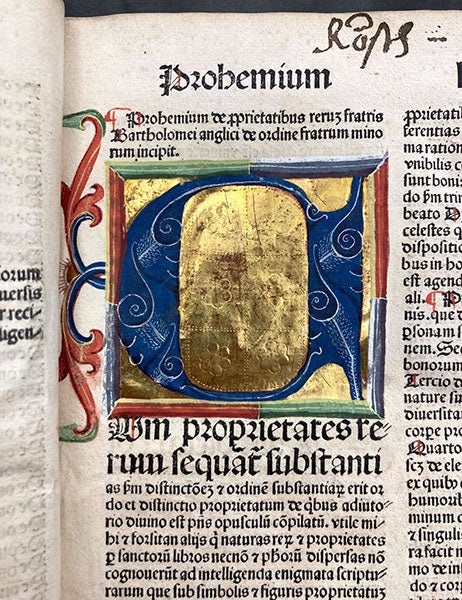 lorum
iuersis
r reci-
ligen-
Prohemium
¶ Prohemium de ꝓprietatibus reruʒ fratris
Bartholomei anglici de ordine fratrum mino
rum incipit.
C
Um proprietates re-
rum sequāt substanti
as ẜm distinctōeʒ ⁊ ordinē substantiaꝝ erit ordo
ei distinctio proprietatum de qͥbus adiuto
rio diuino est pñs opusculū cōpilatū. vtile mi
hi ⁊ forsitan alijs qͥ naturas reꝝ ⁊ proprietates
per sanctoꝝ libros necnō ⁊ phoꝝ dispersas nō
cognouerūt ad intelligenda enigmata scriptu-
rarum que sub simbolis ⁊ figuris proprietatuʒ
prietati
ferentias
ma ration
vnibilis c
sunt bonis
beato D
celestes q
dispositio
bus in ho
est agend
ali. ¶ P
nis. que d
personam s
nem. Se
bonorum
Tercio d
nature su
diuersita
corpe pro
Quarto
ses de ele
ex quibꝰ c
humoribꝰ
minimum c
⁊ singulis
ra facit n
mo de in
do ⁊ cor